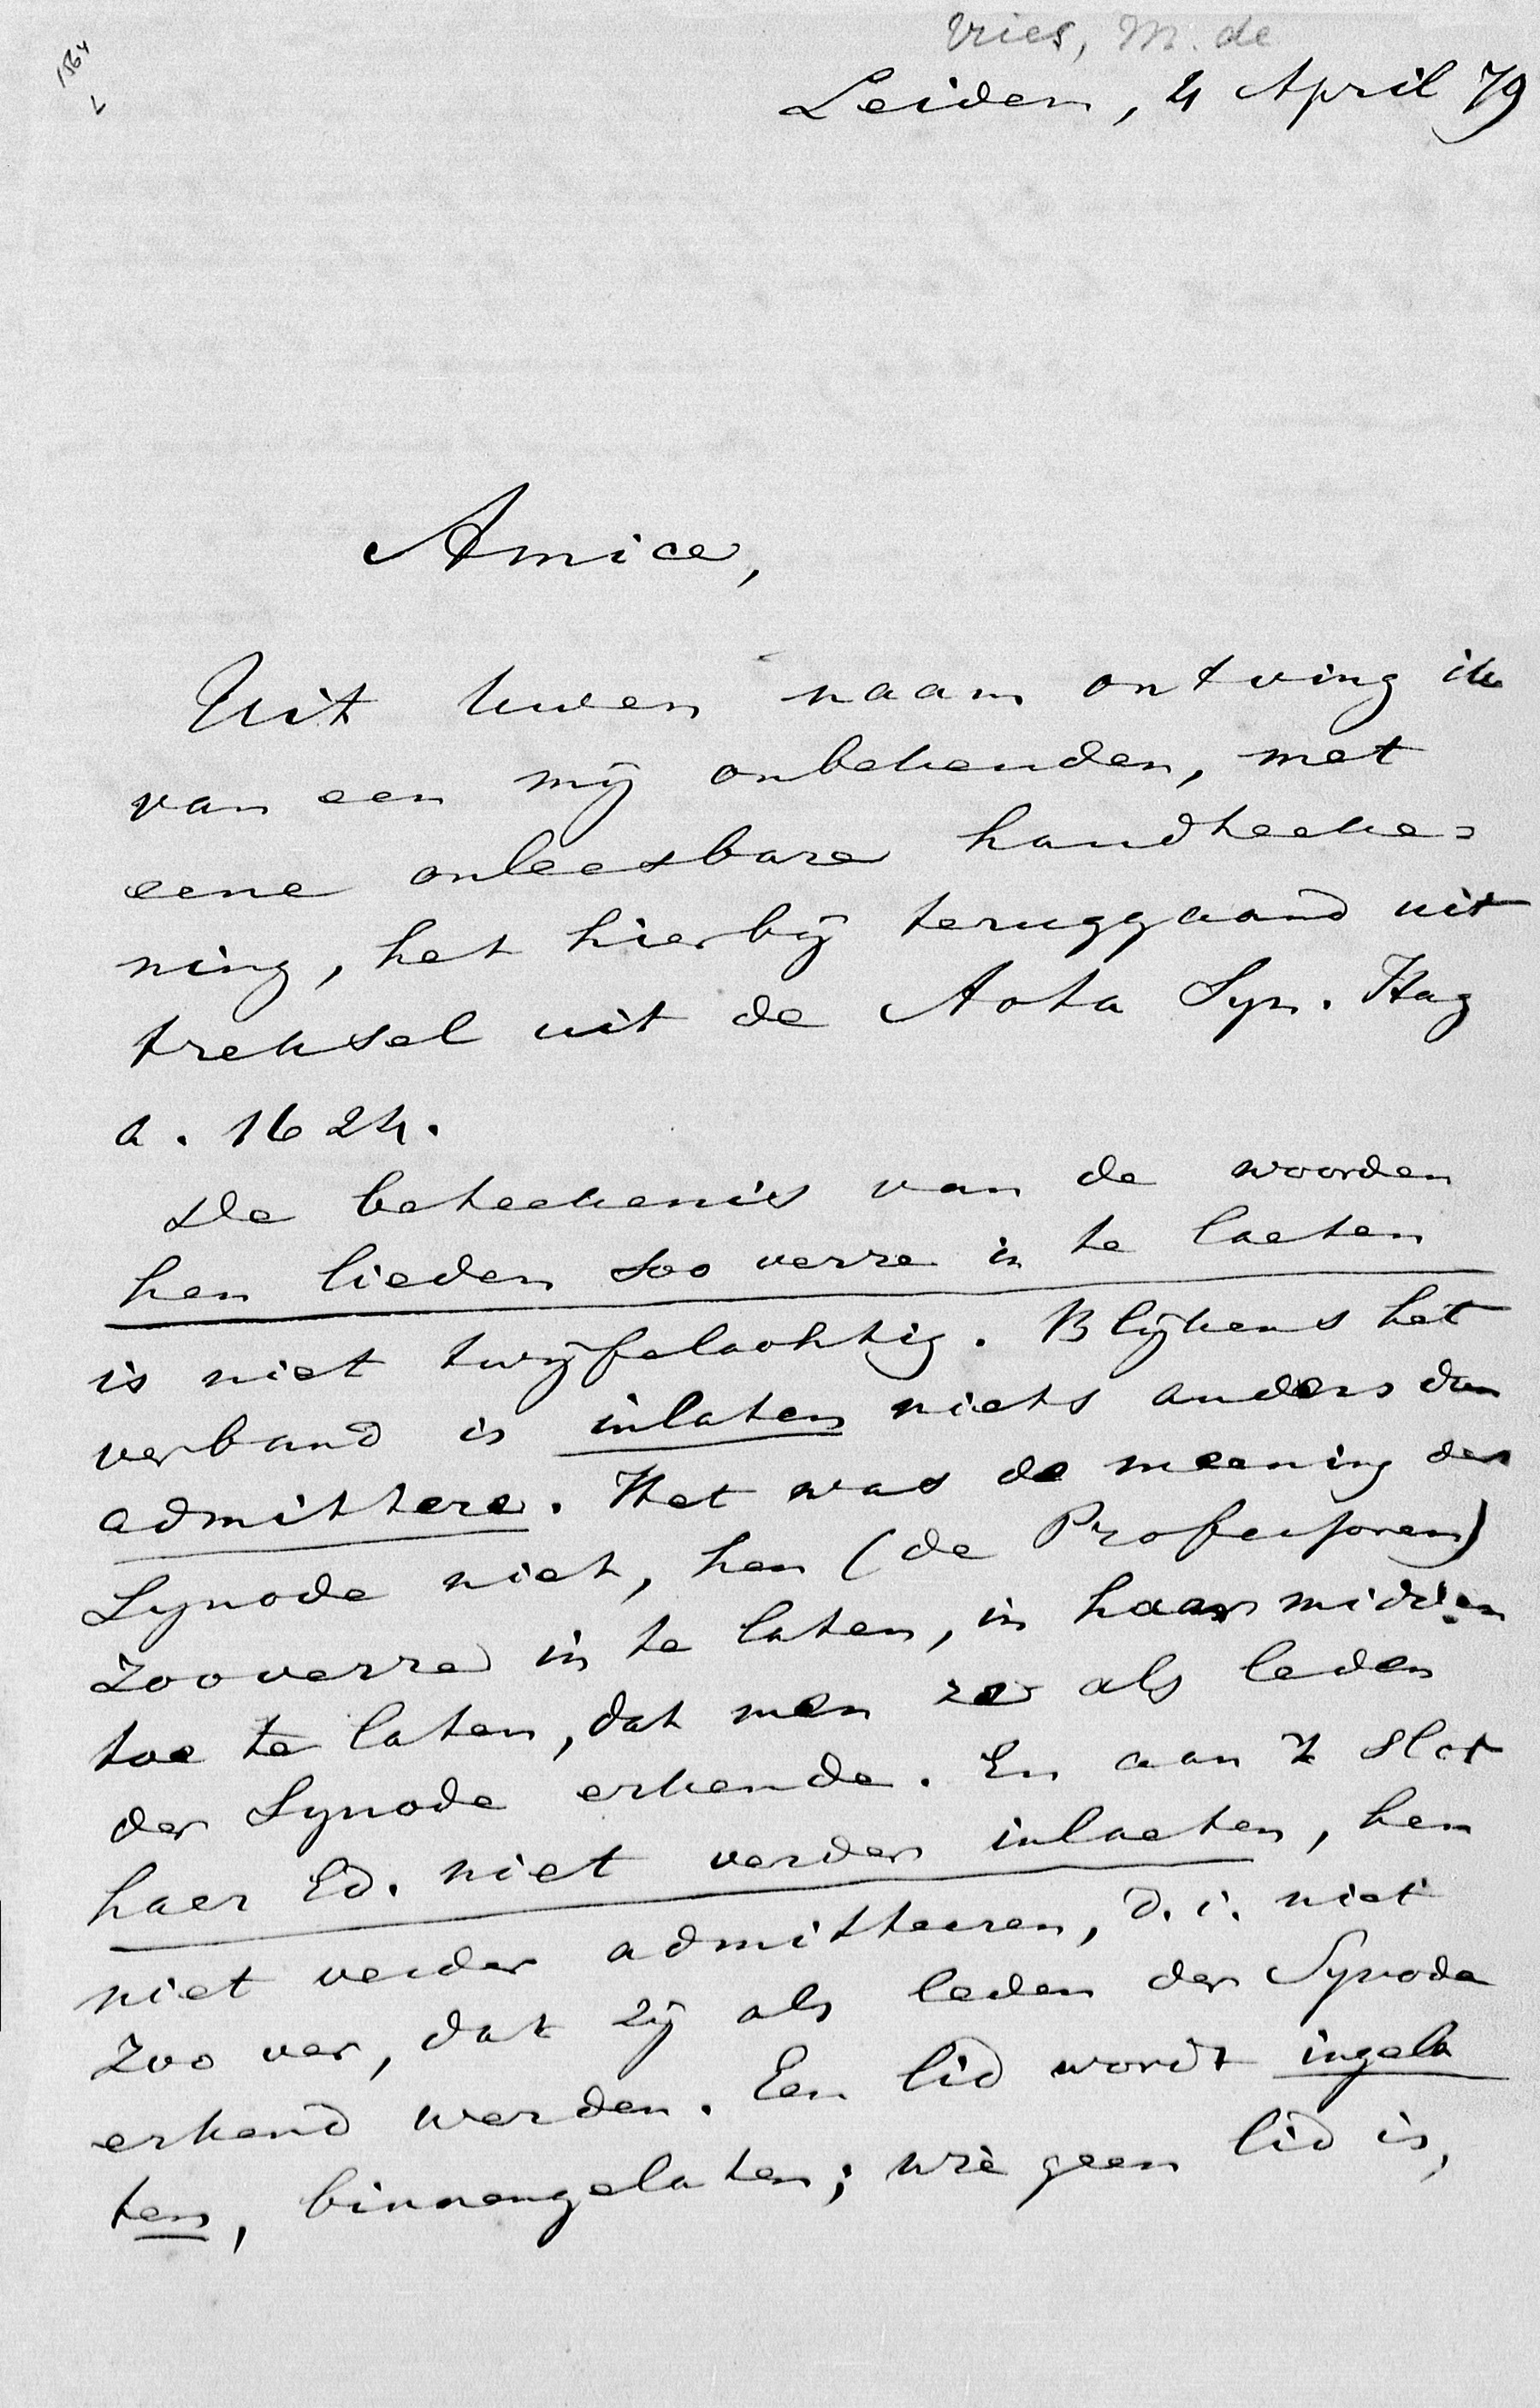 Vries, M. de
1864
L
Leiden, 4 April 79
Amice,
Uit uwen naam ontving ik
van een mij onbekenden, met
eene onleesbare handteeke=
ning, het hierbij teruggaand uit
treksel uit de Acta Syn. Hag
a. 1624.
De beteekenis van de woorden
hen lieden soo verre in te laeten
is niet twijfelachtig. Blijkens het
verband is inlaten niets anders dan
admittere. Het was de meening der
Synode niet, hen (de Professoren)
zooverre in te laten, in haar midden
toe te laten, dat men ze als leden
der Synode erkende. En aan 't slot
haer Ed. niet verder inlaeten, hen
niet verder admitteeren, d. i. niet
zoo ver, dat zij als leden der Synode
erkend werden. Een lid wordt ingela
ten, binnengelaten; wie geen lid is,